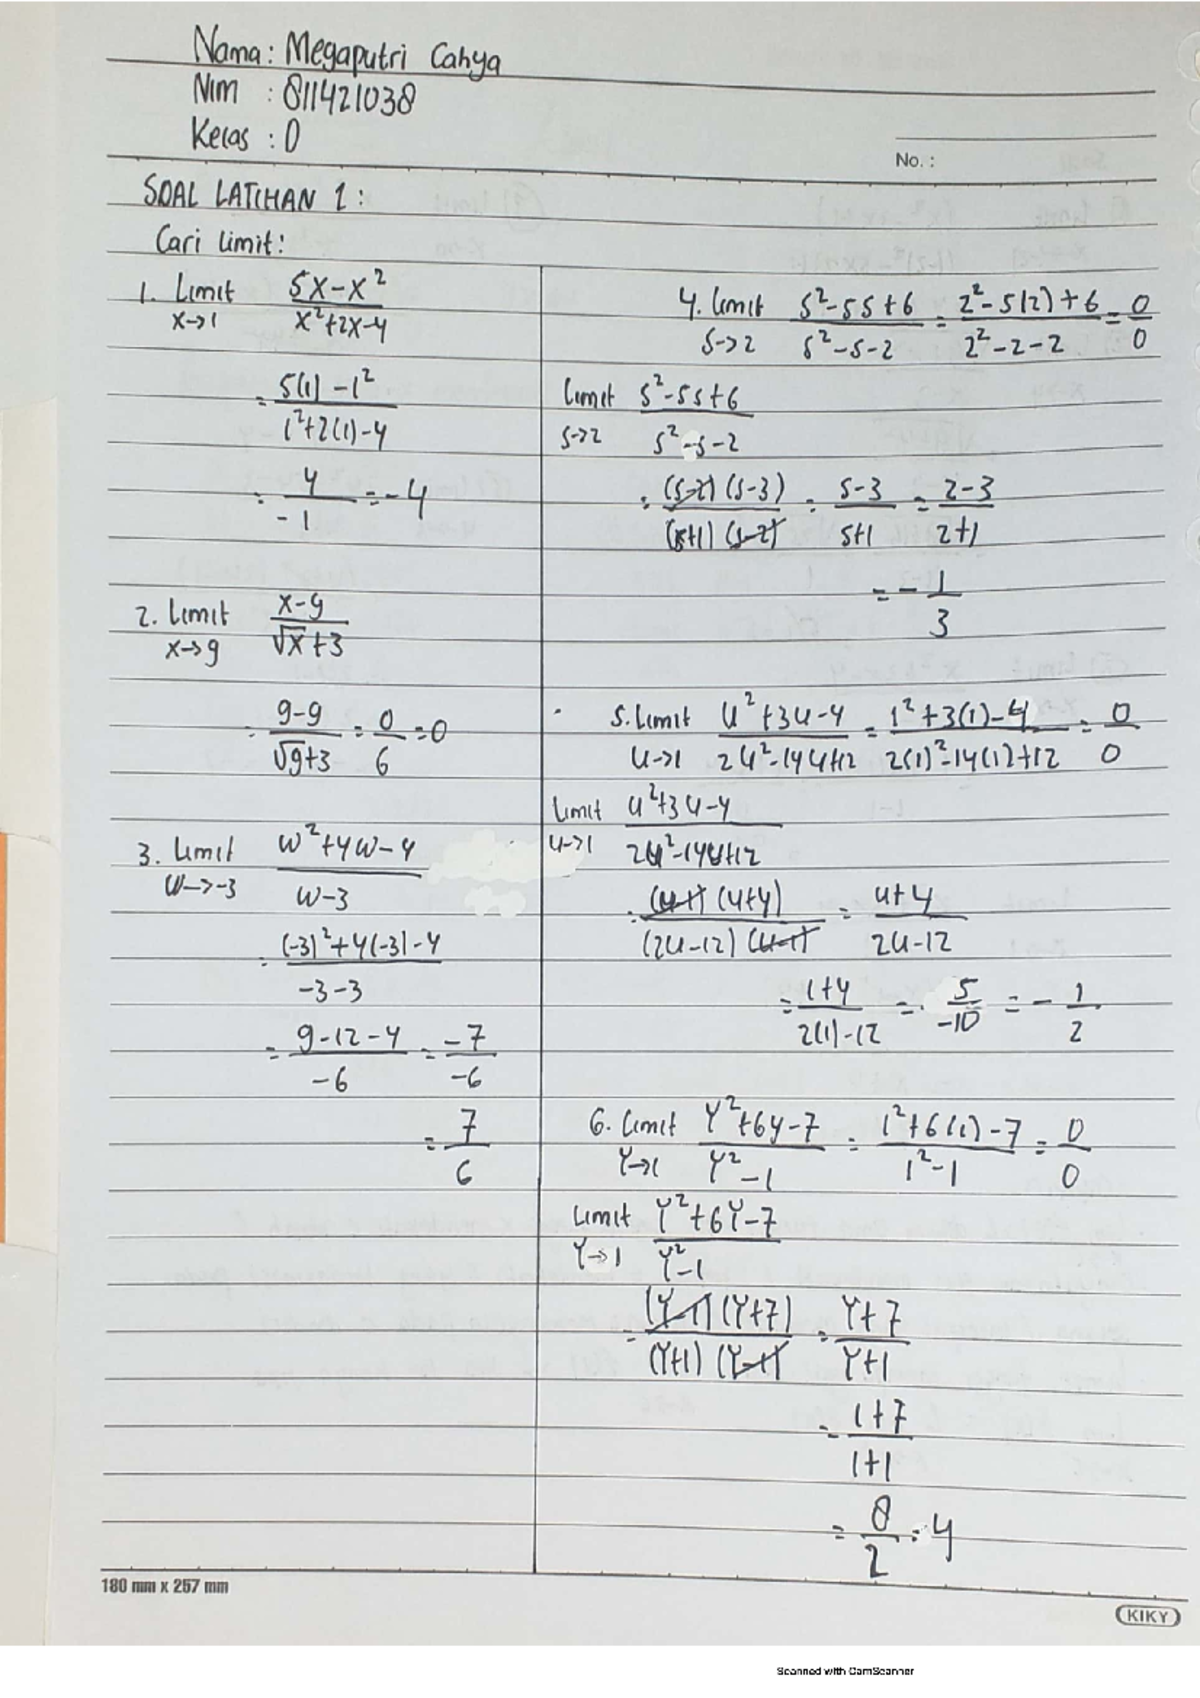 Nama: Megaputri Cahya
Nim : 811421038
Kelas : D
No. :
SOAL LATIHAN 1 :
Cari limit:
1. Limit x→1 (5x-x²)/(x²+2x-4)
= (5(1)-1²)/(1²+2(1)-4)
= 4/-1 = -4
2. Limit x→9 (x-9)/(√x+3)
= (9-9)/(√9+3) = 0/6 = 0
3. Limit w→-3 (w²+4w-4)/(w-3)
= ((-3)²+4(-3)-4)/(-3-3)
= (9-12-4)/-6 = -7/-6
= 7/6
4. Limit s→2 (s²-5s+6)/(s²-s-2) = (2²-5(2)+6)/(2²-2-2) = 0/0
Limit s→2 (s²-5s+6)/(s²-s-2)
= (s-2)(s-3)/(s+1)(s-2) = (s-3)/(s+1) = (2-3)/(2+1)
= -1/3
5. Limit u→1 (u²+3u-4)/(2u²-14u+12) = (1²+3(1)-4)/(2(1)²-14(1)+12) = 0/0
Limit u→1 (u²+3u-4)/(2u²-14u+12)
= (u-1)(u+4)/(2u-12)(u-1) = (u+4)/(2u-12)
= (1+4)/(2(1)-12) = 5/-10 = -1/2
6. Limit Y→1 (Y²+6y-7)/(Y²-1) = (1²+6(1)-7)/(1²-1) = 0/0
Limit Y→1 (Y²+6Y-7)/(Y²-1)
= (Y-1)(Y+7)/(Y+1)(Y-1) = (Y+7)/(Y+1)
= (1+7)/(1+1)
= 8/2 = 4
180 mm x 257 mm
KIKY
Scanned with CamScanner